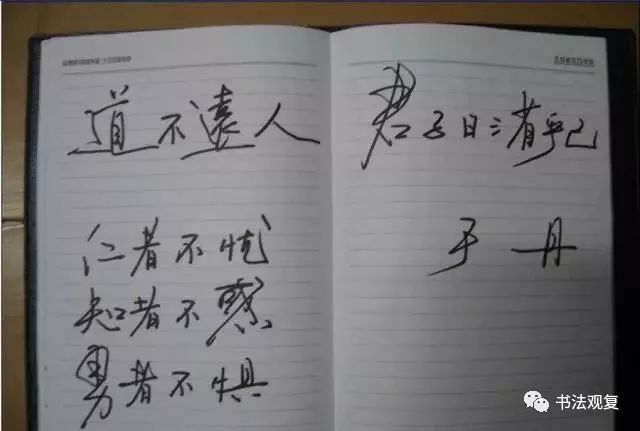 道不遠人
仁者不忧
知者不惑
勇者不惧
君子日三省乎己
于丹
书法观复